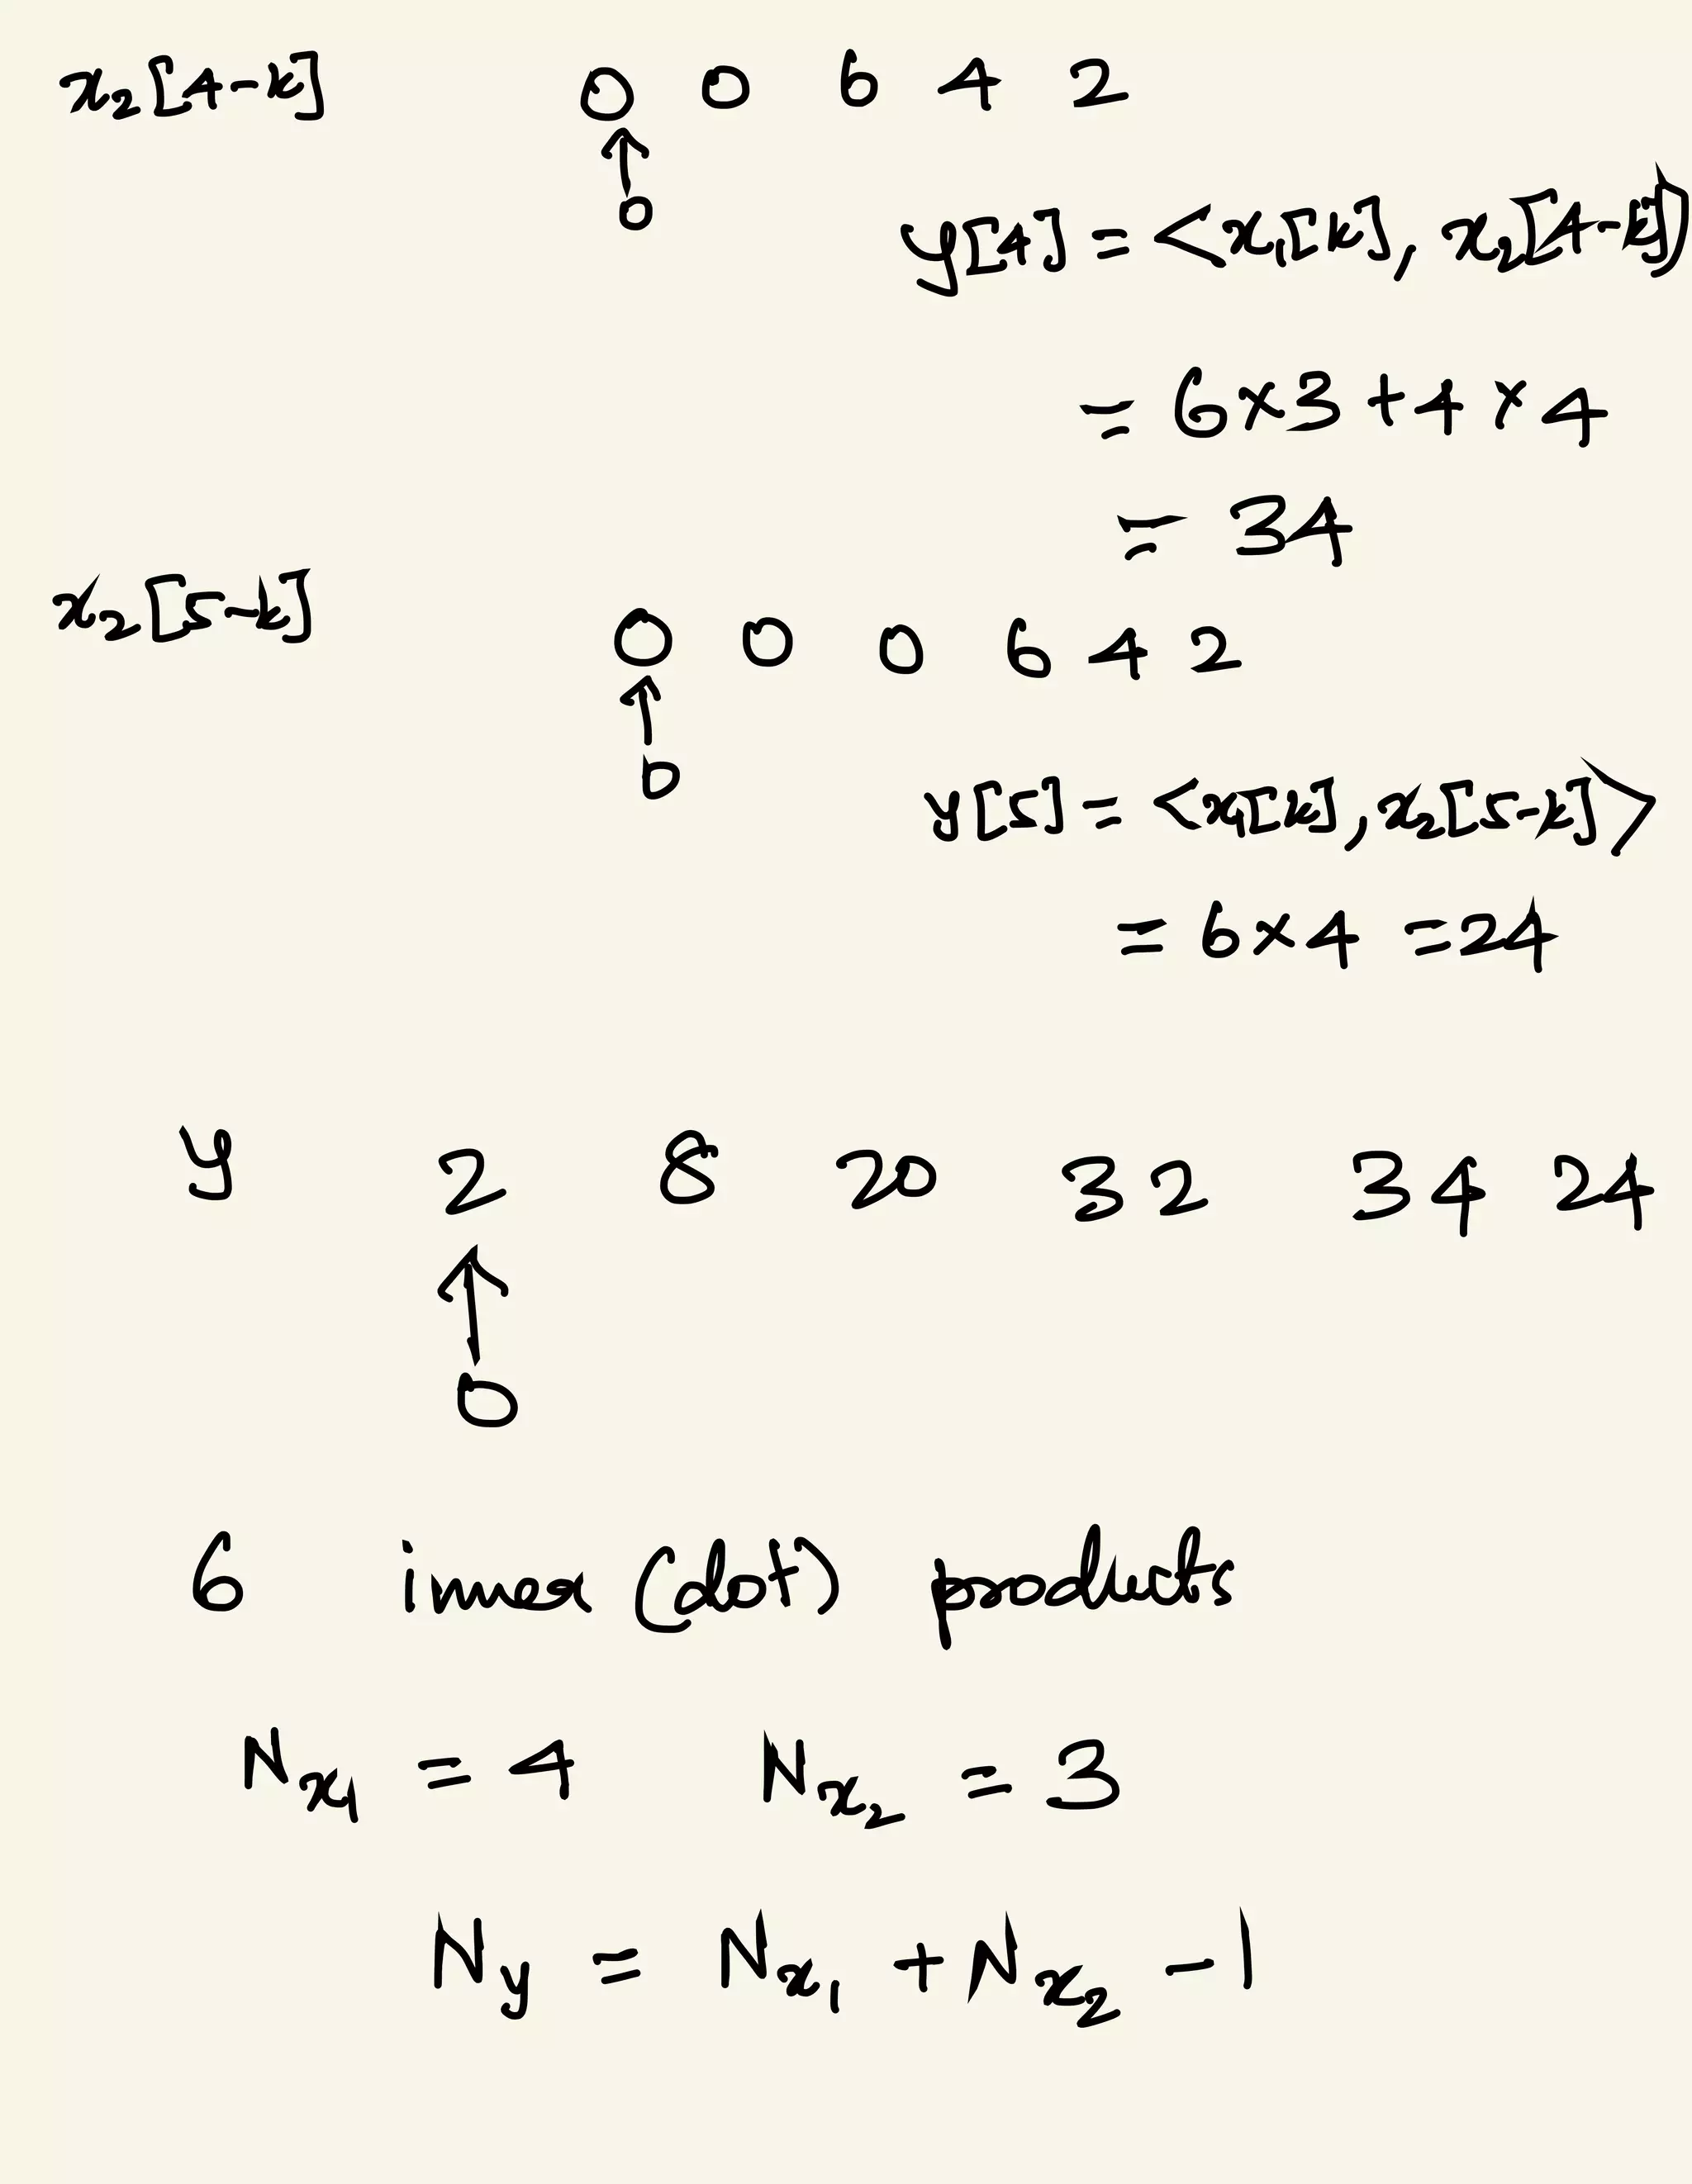 x₂[4-k] 0 0 6 4 2
↑
0
y[4] = <x₁[k], x₂[4-k]>
= 6×3+4×4
= 34
x₂[5-k] 0 0 0 6 4 2
↑
0
y[5] = <x₁[k], x₂[5-k]>
= 6×4 =24
y 2 8 20 32 34 24
↑
0
6 inner (dot) products
Nx₁ = 4 Nx₂ = 3
Ny = Nx₁ + Nx₂ -1